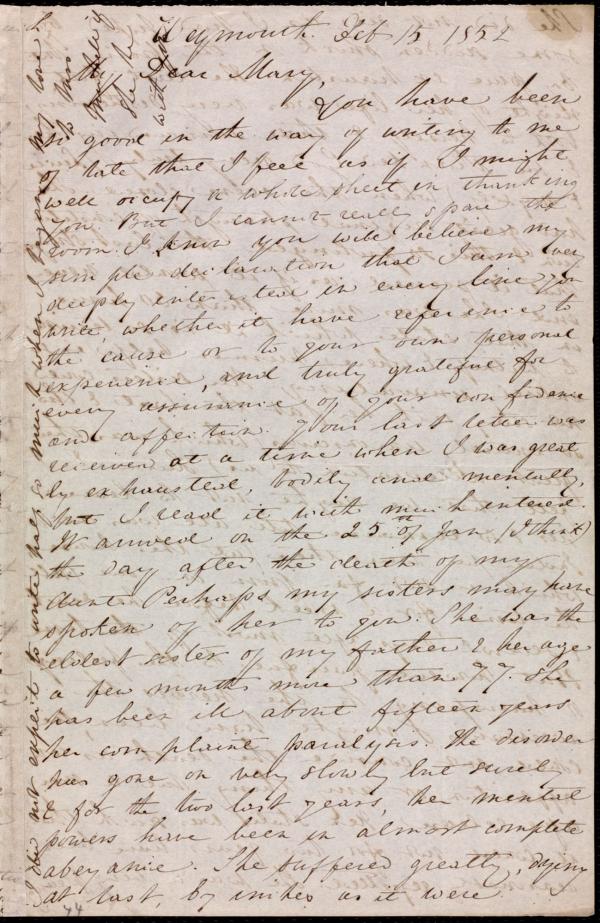 Weymouth. Feb 15 1852
My Dear Mary,
You have been
so good in the way of writing to me
of late that I feel as if I might
well occupy a whole sheet in thanking
you. But I cannot really spare the
room. I know you will believe my
simple declaration that I am very
deeply interested in every line you
write, whether it have reference to
the cause or to your own personal
experience, and truly grateful for
every assurance of your confidence
and affection. Your last letter was
received at a time when I was great
ly exhausted, bodily and mentally,
but I read it with much interest.
It arrived on the 25th of Jan (I think)
the day after the death of my
Aunt. Perhaps my sisters may have
spoken of her to you. She was the
eldest sister of my father & her age
a few months more than 77. She
has been ill about fifteen years
her complaint paralysis. The disorder
has gone on very slowly but surely
& for the two last years, her mental
powers have been in almost complete
abeyance. She suffered greatly, dying
at last, by inches as it were.
I did not expect to write half so much when I began. My love
to Miss
if
she be
with you
44